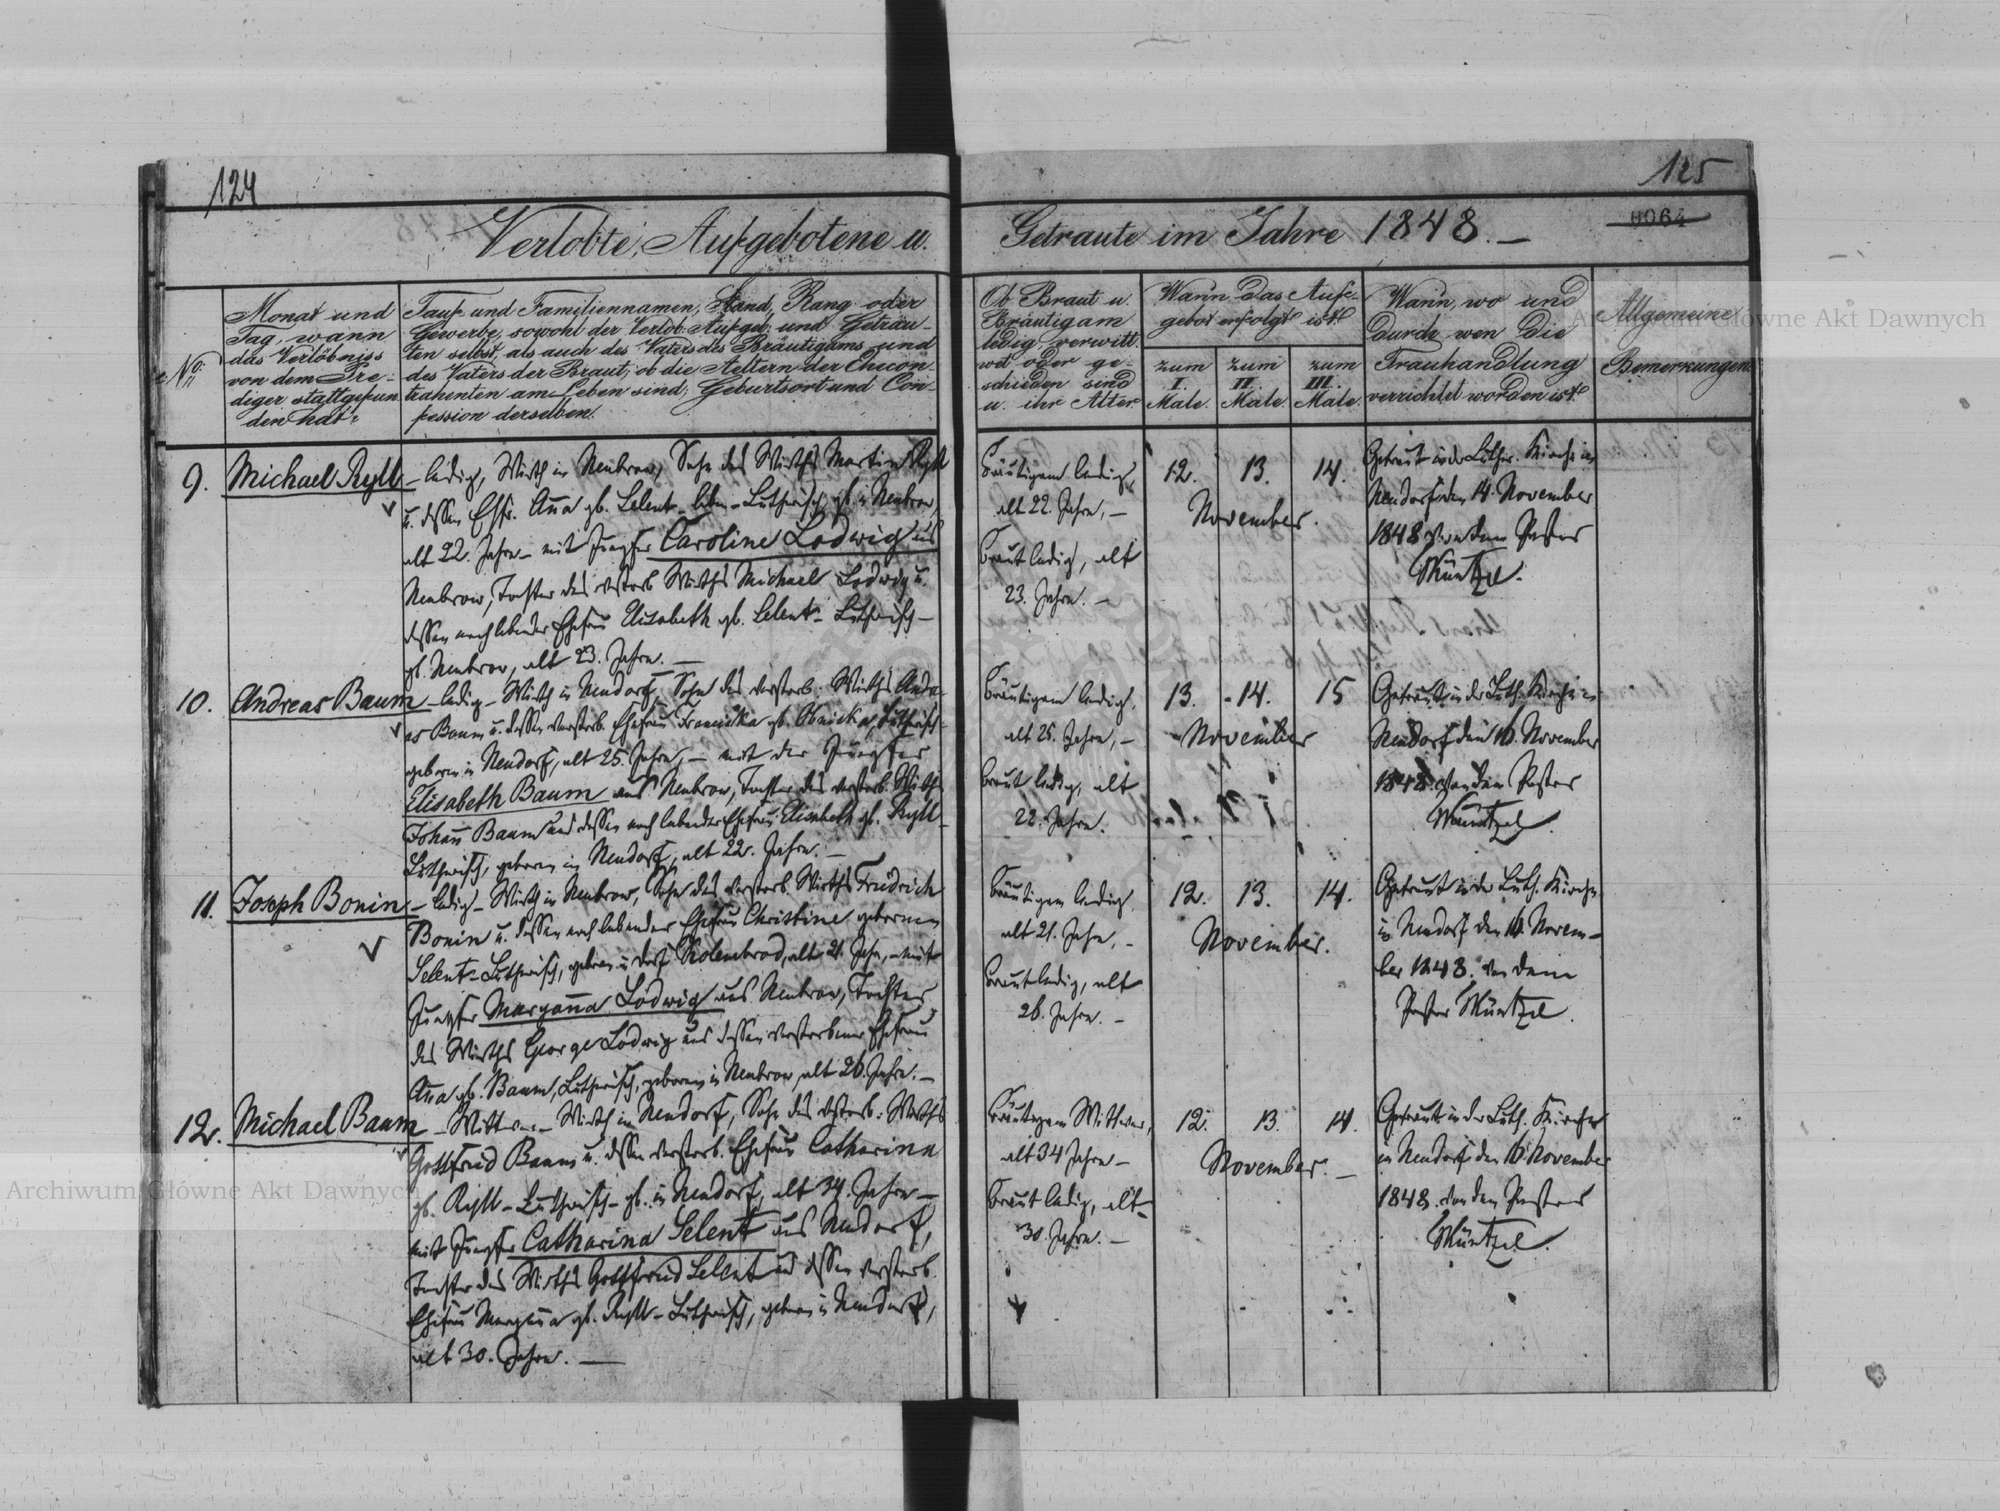 124
125
Verlobte, Aufgebotene u.
Getraute im Jahre 1848. —
0064
No
Monat und
Tag, wann
das Verlöbniss
von dem Pre-
diger stattgefun
den hat:
Tauf- und Familiennamen, Stand, Rang oder
Gewerbe, sowohl der Verlob: Aufgeb: und Getrau-
ten selbst, als auch des Vaters des Bräutigams und
des Vaters der Braut; ob die Aeltern der Ehecon-
trahenten am Leben sind; Geburtsort und Con-
fession derselben.
Ob Braut u.
Bräutigam
ledig, verwitt
wet oder ge-
schieden sind
u. ihr Alter
Wann das Aufge-
gebot erfolgt ist.
zum I. Male.
zum II. Male.
zum III. Male.
Wann, wo und
durch wen die
Trauhandlung
verrichtet worden ist.
Allgemeine
Bemerkungen.
9. Michael Ryll
– ledig, Wirth in Neubrow, Sohn des Wirths Martin Ryll
u. dessen Ehefr. Anna gb. Selent – leben – Lutherisch, gb. in Neubrow,
alt 22. Jahre – mit Jungfer Caroline Lodwig aus
Neubrow, Tochter des verstorb. Wirths Michael Lodwig u.
dessen noch lebender Ehefrau Elisabeth gb. Selent – Lutherisch –
gb. Neubrow, alt 23. Jahre. —
Bräutigam ledig,
alt 22. Jahre, –
Braut ledig, alt
23. Jahre. –
12. 13. 14.
November.
Getraut in der Luther. Kirche in
Neudorf den 14. November
1848 von dem Pastor
Müntzel.
10. Andreas Baum
– ledig – Wirth in Neudorf, Sohn des verstorb. Wirths Andre-
as Baum u. dessen verstorb. Ehefrau Franciska gb. Lutherisch –
geboren in Neudorf, alt 25. Jahre, – mit der Jungfer
Elisabeth Baum aus Neubrow, Tochter des verstorb. Wirths
Johann Baum und dessen noch lebender Ehefrau Elisabeth gb. Ryll –
Lutherisch, geboren in Neudorf, alt 22. Jahre. –
Bräutigam ledig,
alt 25. Jahre, –
Braut ledig, alt
22. Jahre.
13. 14. 15
November
Getraut in der Luth. Kirche in
Neudorf den 16. November
1848. von dem Pastor
Müntzel.
11. Joseph Bonin
– ledig – Wirth in Neubrow, Sohn des verstorb. Wirths Friedrich
Bonin u. dessen noch lebender Ehefrau Christine geborenen
Selent – Lutherisch, geboren in Dorf Molenbrod, alt 21. Jahre, – mit
Jungfer Maryanna Lodwig aus Neubrow, Tochter
des Wirths George Lodwig und dessen verstorbener Ehefrau
Anna gb. Baum, Lutherisch, geboren in Neubrow, alt 26. Jahre. –
Bräutigam ledig,
alt 21. Jahre, –
Braut ledig, alt
26. Jahre. –
12. 13. 14.
November.
Getraut in der Luth. Kirche
in Neudorf den 16. Novem-
ber 1848. von dem
Pastor Müntzel.
12. Michael Baum
– Wittwer – Wirth in Neudorf, Sohn des verstorb. Wirths
Gottfried Baum u. dessen verstorb. Ehefrau Catharina
gb. Ryll – Lutherisch – gb. in Neudorf, alt 34. Jahre –
mit Jungfer Catharina Selent aus Neudorf,
Tochter des Wirths Gottfried Selent und dessen verstorb.
Ehefrau Maryanna gb. Ryll – Lutherisch, geboren in Neudorf,
alt 30. Jahre. —
Bräutigam Wittwer,
alt 34 Jahre –
Braut ledig, alt
30. Jahre. –
12. 13. 14.
November. –
Getraut in der Luth. Kirche
in Neudorf den 16. November
1848. von dem Pastor
Müntzel.
Archiwum Główne Akt Dawnych
Archiwum Główne Akt Dawnych